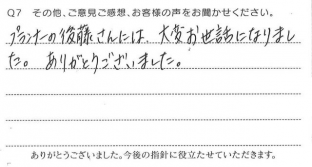 Q7 その他、ご意見ご感想、お客様の声をお聞かせください。
プランナーの後藤さんには、大変お世話になりまし
た。ありがとうございました。
ありがとうございました。今後の指針に役立たせていただきます。